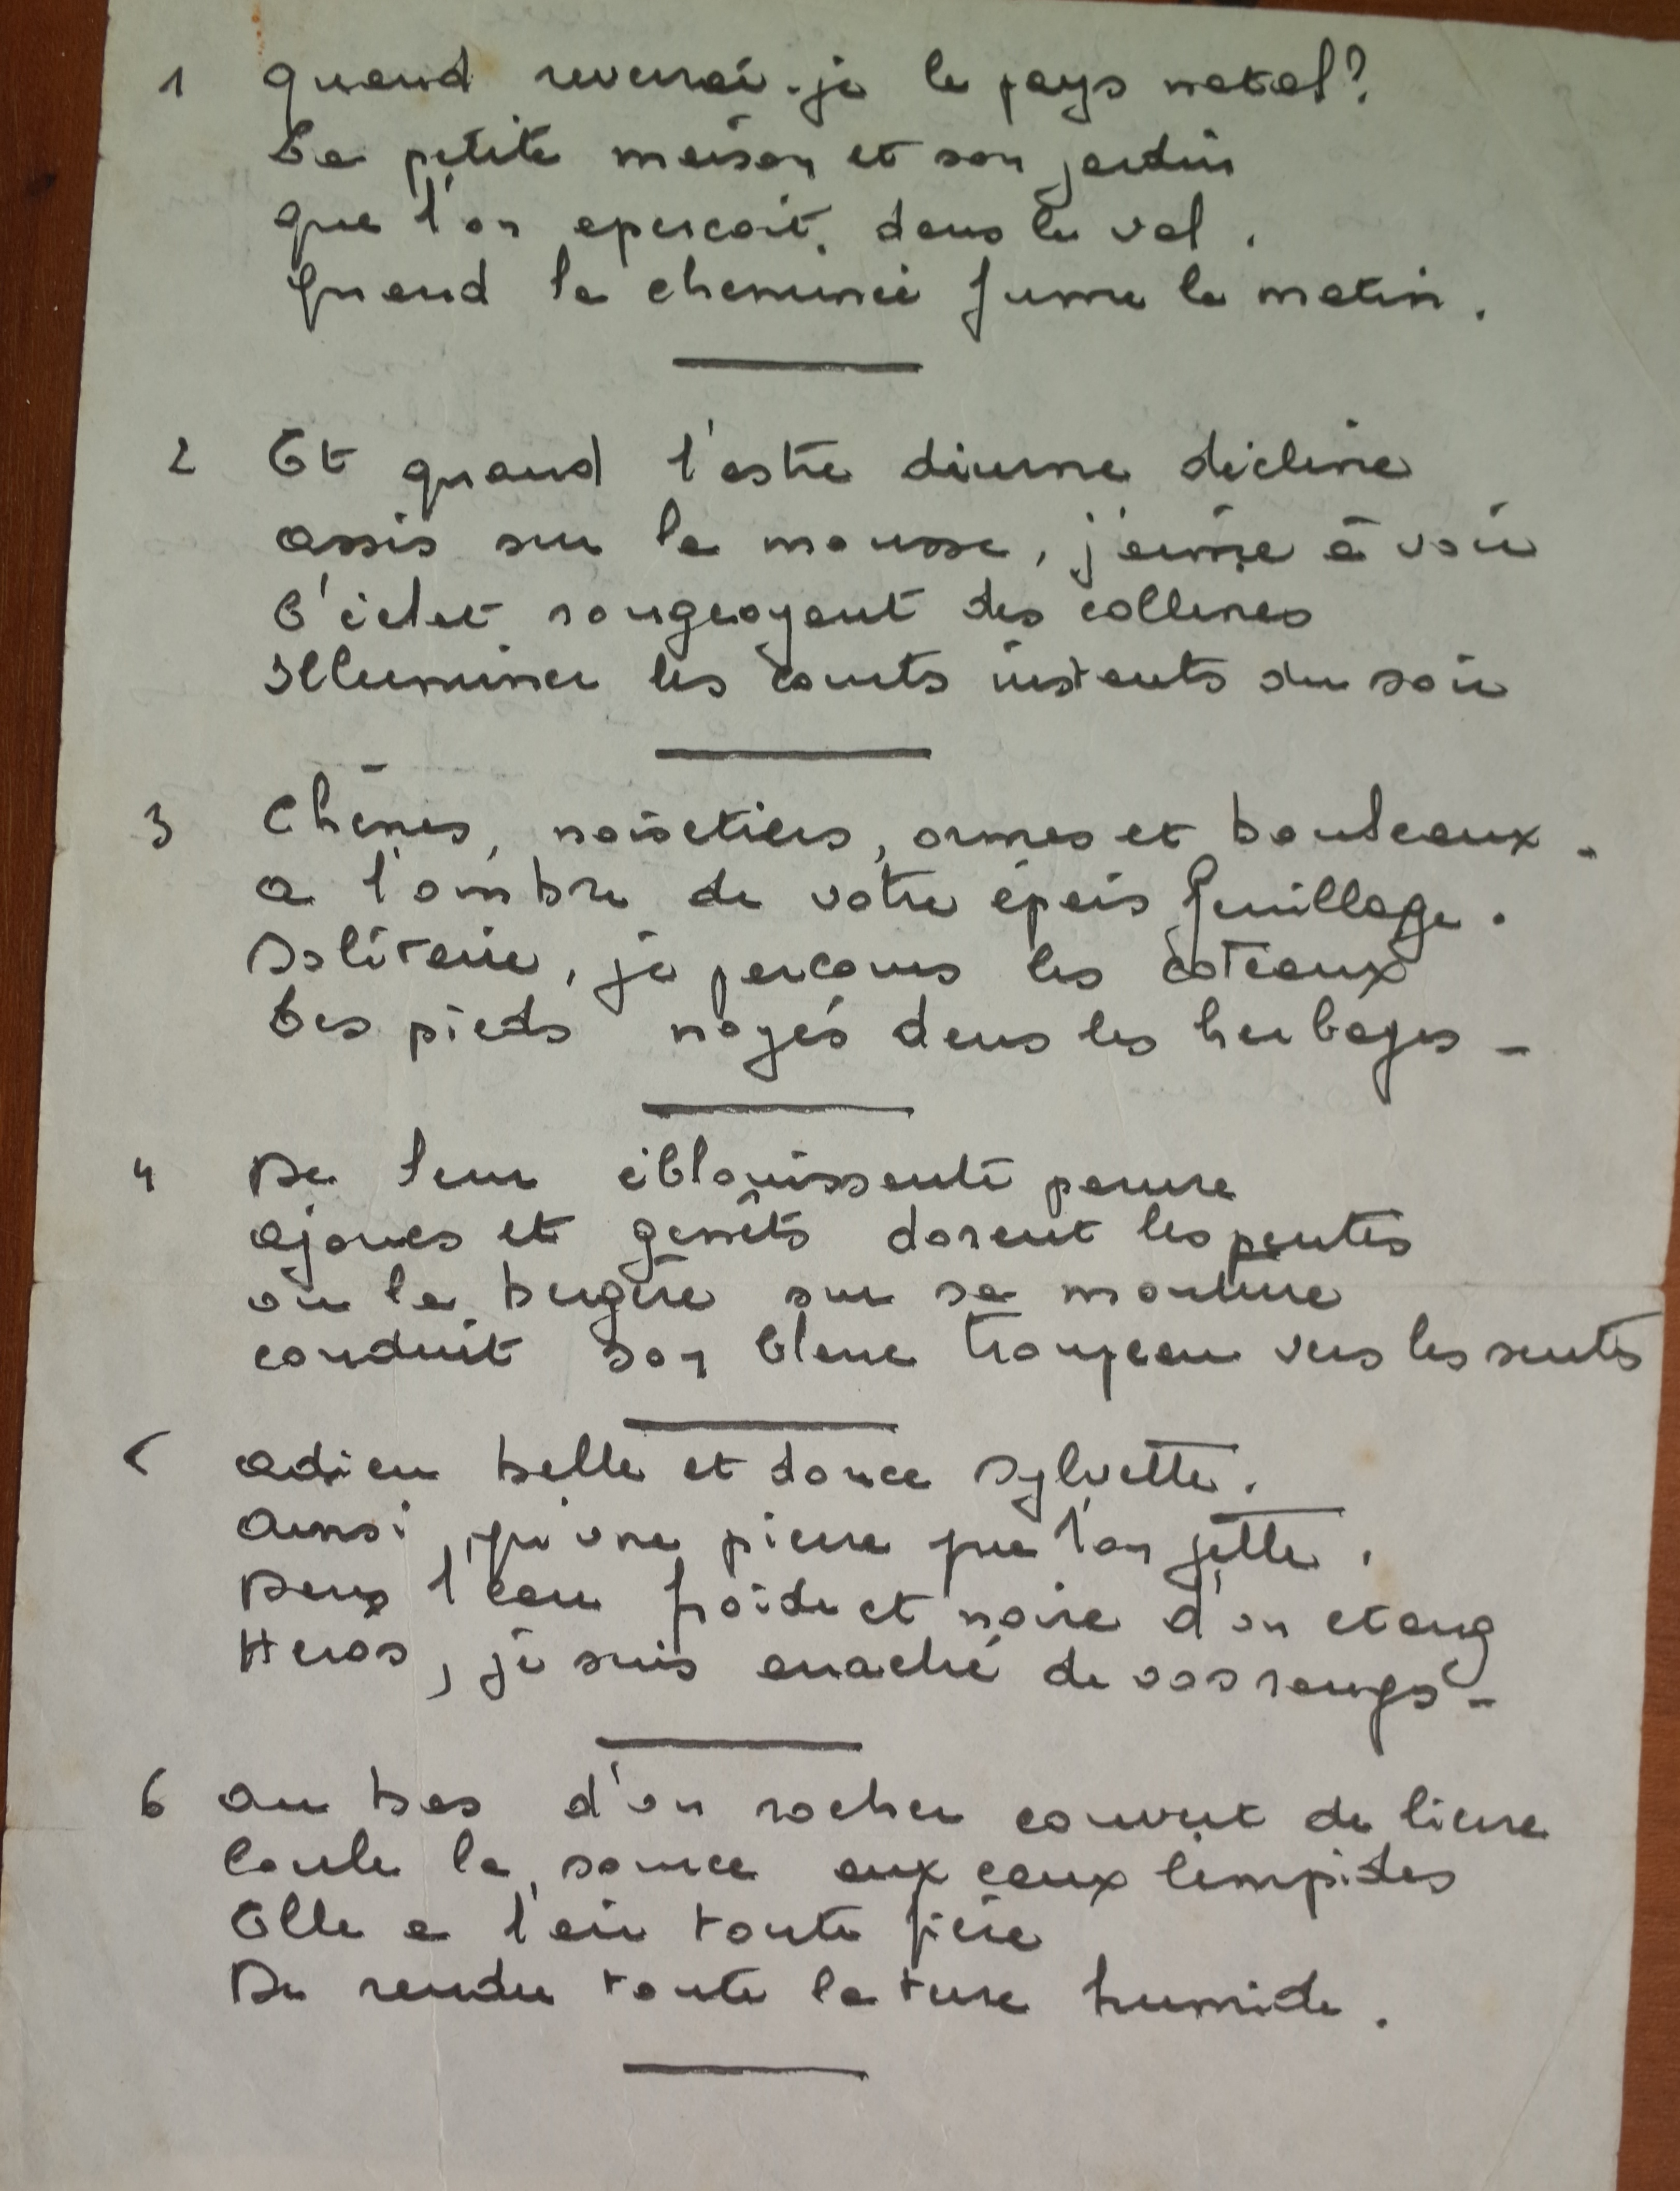 1 Quand reverrai-je le pays natal?
La petite maison et son jardin
que l'on aperçoit, dans le val.
Quand la cheminée fume le matin.
2 Et quand l'astre diurne décline
assis sur la mousse, j'aime à voir
L'éclat rougeoyant des collines
Illuminer les courts instants du soir
3 Chênes, noisetiers, ormes et bouleaux.
a l'ombre de votre épais feuillage.
Solitaire, je parcours les coteaux
Les pieds noyés dans les herbages -
4 De leur éblouissante parure
ajoncs et genêts dorent les pentes
où la bergère sur sa monture
conduit son blanc troupeau vers les sentes
5 adieu belle et douce Sylvette.
Ainsi, qu'une pierre que l'on jette.
Dans l'eau froide et noire d'un etang
Héros, je suis arraché de vos rangs -
6 au bas d'un rocher couvert de lierre
Coule la source aux eaux limpides
Elle a l'air toute fière
De rendre toute la terre humide.